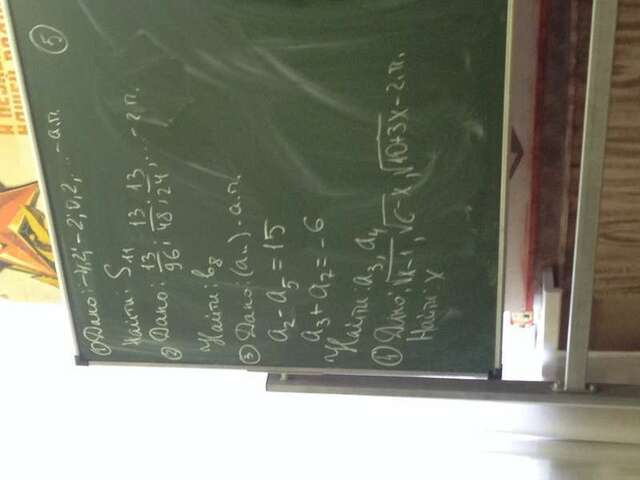 ⑤
① Дано: -4,2; -2; 0,2, ... - а.п.
Найти: S₁₁
② Дано: 13/96; 13/48; 13/24; ... - г.п.
Найти: b₈
③ Дано: (aₙ) - а.п.
a₂ - a₅ = 15
a₃ + a₇ = -6
Найти: a₃, a₄
④ Дано: √x-1, √6-x, √10+3x - г.п.
Найти: x